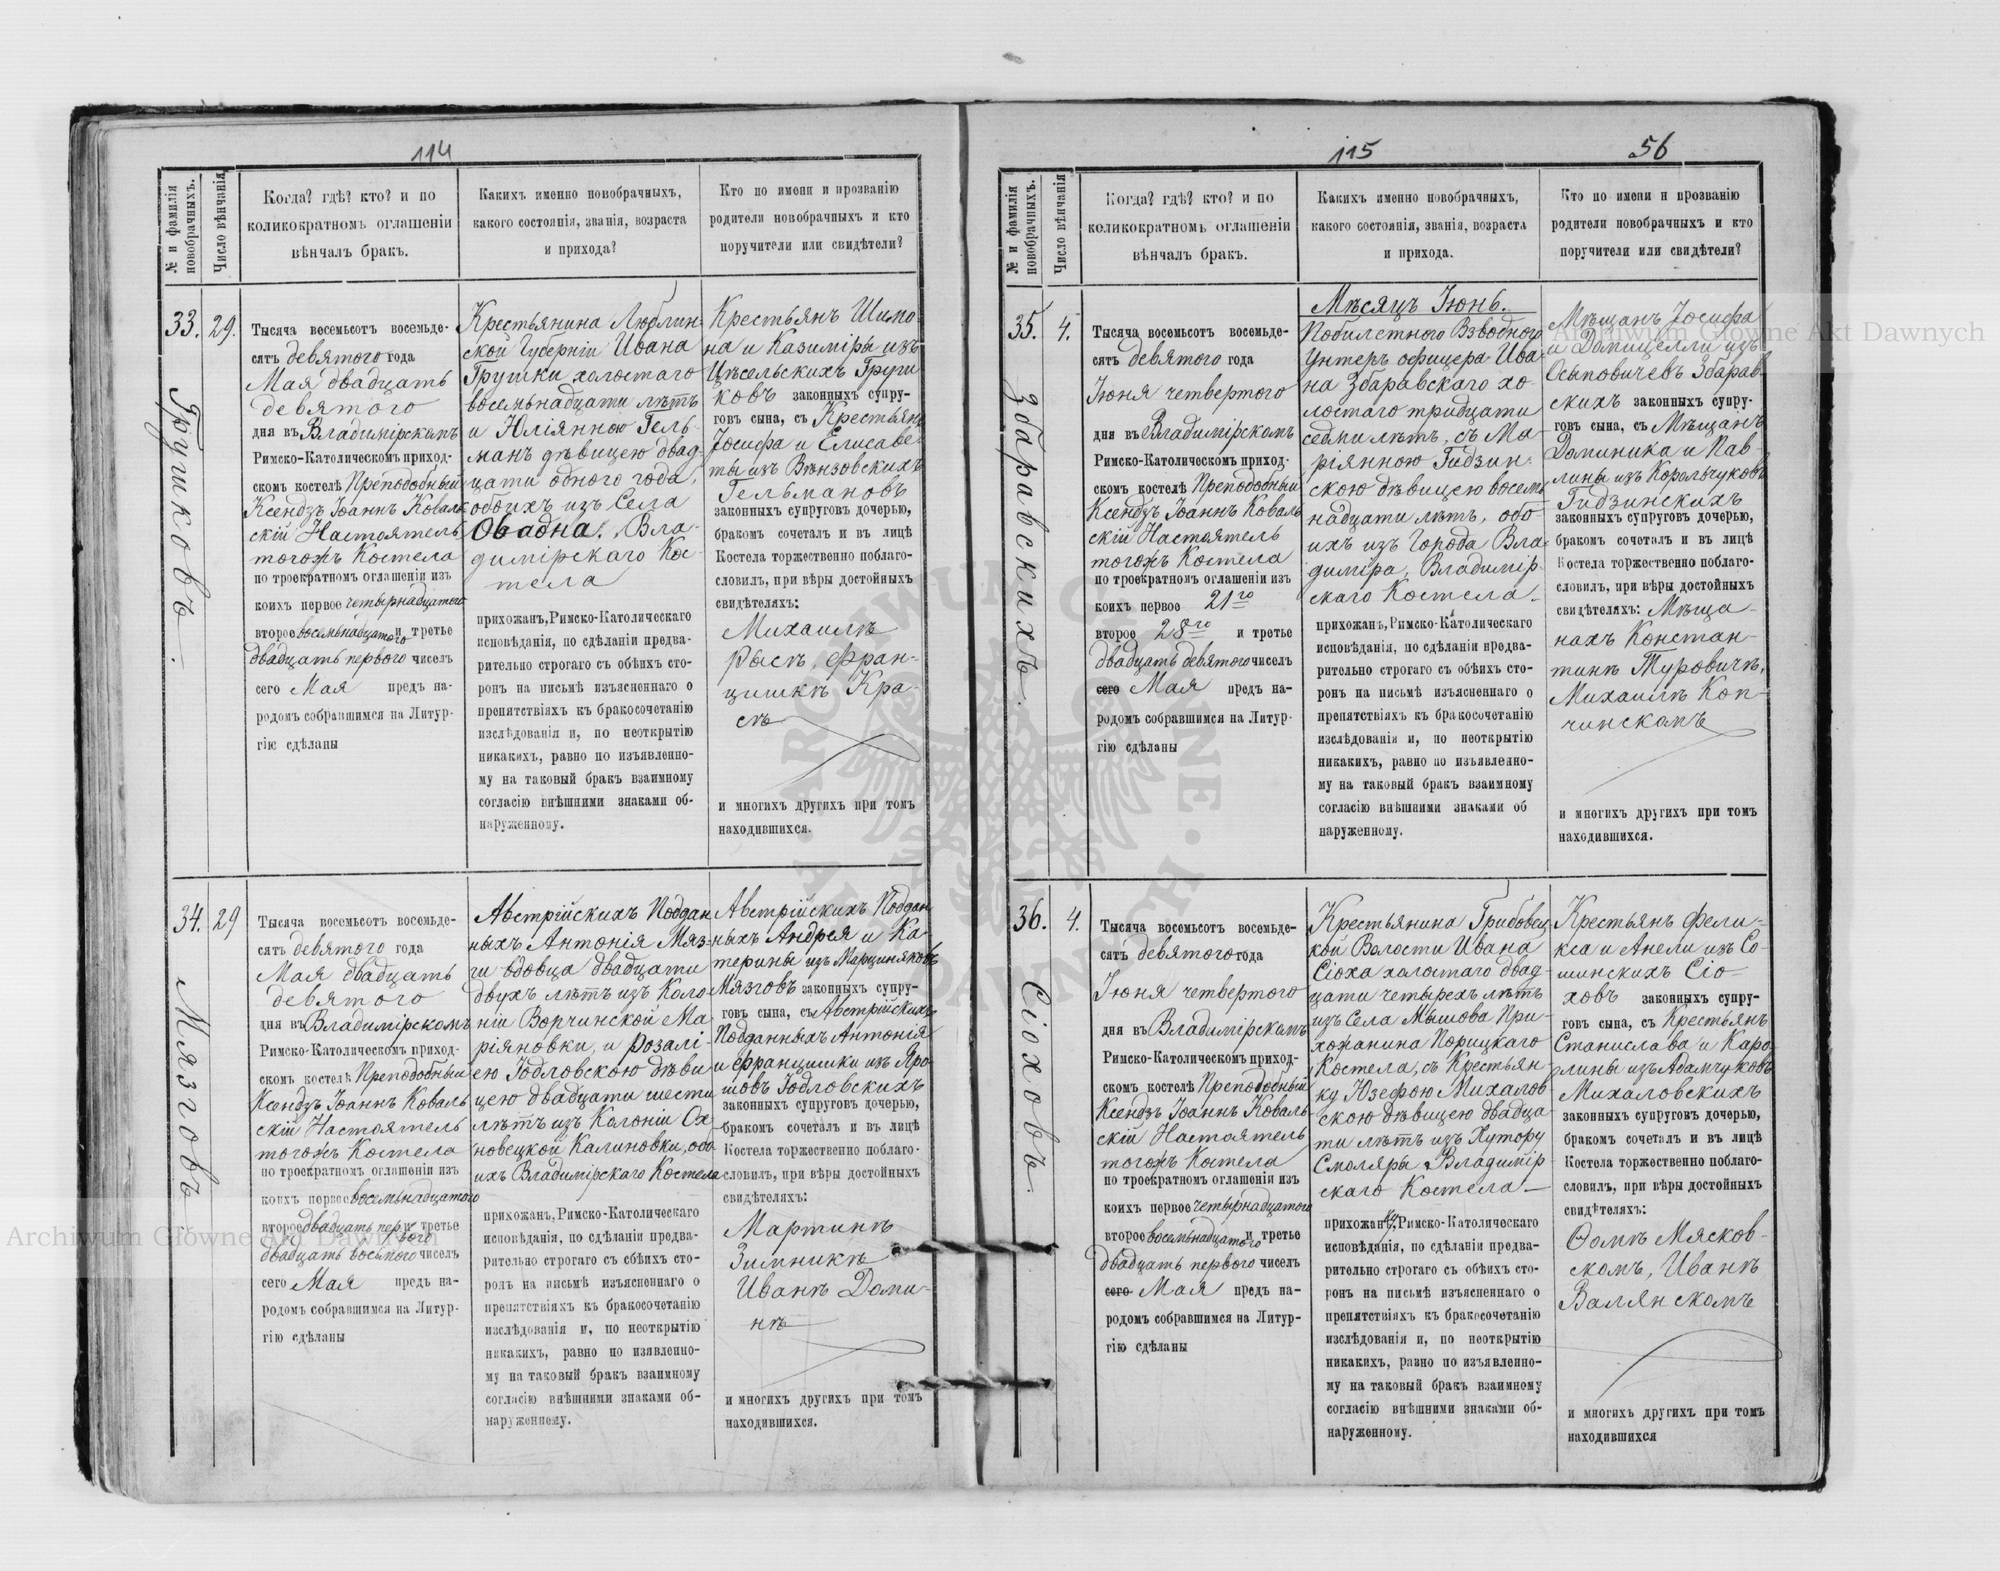 114
№ и фамилія новобрачныхъ.
Число вѣнчанія
Когда? гдѣ? кто? и по
коликократномъ оглашеніи
вѣнчалъ бракъ.
Какихъ именно новобрачныхъ,
какого состоянія, званія, возраста
и прихода?
Кто по имени и прозванію
родители новобрачныхъ и кто
поручители или свидѣтели?
33.
Грушковъ.
29.
Тысяча восемьсотъ восемьде-
сятъ девятого года
Мая двадцать
девятого
дня въ Владимірскомъ
Римско-Католическомъ приход-
скомъ костелѣ Преподобный
Ксендзъ Іоаннъ Коваль
скій Настоятель
тогожъ Костела
по троекратномъ оглашеніи изъ
коихъ первое четырнадцатого
второе восемьнадцатого и третье
двадцать первого чиселъ
сего Мая предъ на-
родомъ собравшимся на Литур-
гію сдѣланы
Крестьянина Люблин-
ской Губерніи Ивана
Грушки холостаго
восемьнадцати лѣтъ
и Юліянною Гель-
манъ дѣвицею двад-
цати одного года,
обоихъ изъ Села
Овадна. Вла-
димірскаго Кос-
тела
прихожан, Римско-Католическаго
исповѣданія, по сдѣланіи предва-
рительно строгаго съ обѣихъ сто-
ронъ на письмѣ изъясненнаго о
препятствіяхъ къ бракосочетанію
изслѣдованія и, по неоткрытію
никакихъ, равно по изъявленно-
му на таковый бракъ взаимному
согласію внѣшними знаками об-
наруженному.
Крестьянъ Шимо-
на и Казиміры изъ
Цѣсельскихъ Груш
ковъ законныхъ супру-
говъ сына, съ Крестьянъ
Іосифа и Елисаве-
ты изъ Вѣнзовскихъ
Гельмановъ
законныхъ супруговъ дочерью,
бракомъ сочеталъ и въ лицѣ
Костела торжественно поблаго-
словилъ, при вѣры достойныхъ
свидѣтеляхъ:
Михаилѣ
Рысѣ, Фран-
цишкѣ Кра-
съ
и многихъ другихъ при томъ
находившихся.
34.
Мязговъ
29
Тысяча восемьсотъ восемьде-
сятъ девятого года
Мая двадцать
девятого
дня въ Владимірскомъ
Римско-Католическомъ приход-
скомъ костелѣ Преподобный
Ксендзъ Іоаннъ Коваль
скій Настоятель
тогожъ Костела
по троекратномъ оглашеніи изъ
коихъ первое восемьнадцатого
второе двадцать первого и третье
двадцать восьмого чиселъ
сего Мая предъ на-
родомъ собравшимся на Литур-
гію сдѣланы
Австрійскихъ Поддан
ныхъ Антонія Мяз-
ги вдовца двадцати
двухъ лѣтъ изъ Коло
ніи Ворчинской Ма-
ріяновки, и Розалі-
ею Іодловскою дѣви
цею двадцати шести
лѣтъ изъ Калоніи Ох-
новецкой Калиновки, обо
ихъ Владимірскаго Костела
прихожан, Римско-Католическаго
исповѣданія, по сдѣланіи предва-
рительно строгаго съ сбѣихъ сто-
ронъ на письмѣ изъясненнаго о
препятствіяхъ къ бракосочетанію
изслѣдованія и, по неоткрытію
никакихъ, равно по изявленно-
му на таковый бракъ взаимному
согласію внѣшними знаками об-
наруженному.
Австрійскихъ Поддан
ныхъ Андрея и Ка-
терины изъ Марциняковъ
Мязговъ законныхъ супру-
говъ сына, съ Австрійскихъ
Подданныхъ Антонія
и Францишки изъ Яро
шовъ Іодловскихъ
законныхъ супруговъ дочерью,
бракомъ сочеталъ и въ лицѣ
Костела торжественно поблаго-
словилъ, при вѣры достойныхъ
свидѣтеляхъ:
Мартинѣ
Зимникѣ
Иванѣ Доми-
нѣ
и многихъ другихъ при томъ
находившихся.
115
56
№ и фамилія новобрачныхъ.
Число вѣнчанія
Когда? гдѣ? кто? и по
коликократномъ оглашеніи
вѣнчалъ бракъ.
Какихъ именно новобрачныхъ,
какого состоянія, званія, возраста
и прихода.
Кто по имени и прозванію
родители новобрачныхъ и кто
поручители или свидѣтели?
35.
Збаравскихъ.
4.
Тысяча восемьсотъ восемьде-
сятъ девятого года
Іюня четвертого
дня въ Владимірскомъ
Римско-Католическомъ приход-
скомъ костелѣ Преподобный
Ксендзъ Іоаннъ Коваль
скій Настоятель
тогожъ Костела
по троекратномъ оглашеніи изъ
коихъ первое 21го
второе 28го и третье
двадцать девятого чиселъ
сего Мая предъ на-
родомъ собравшимся на Литур-
гію сдѣланы
Мѣсяцъ Іюнь.
Побилетного Взводного
Унтеръ офицера Ива-
на Збаравскаго хо-
лостаго тридцати
седми лѣтъ, съ Ма-
ріянною Гидзин-
скою дѣвицею восемь
надцати лѣтъ, обо
ихъ изъ Города Вла-
диміра, Владимір-
скаго Костела.
прихожанъ, Римско-Католическаго
исповѣданія, по сдѣланіи предва-
рительно строгаго съ обѣихъ сто-
ронъ на письмѣ изъясненнаго о
препятствіяхъ къ бракосочетанію
изслѣдованія и, по неоткрытію
никакихъ, равно по изъявленно-
му на таковый бракъ взаимному
согласію внѣшними знаками об
наруженному.
Мѣщанъ Іосифа
и Домицелли изъ
Осыповичевъ Збарав-
скихъ законныхъ супру-
говъ сына, съ Мѣщанъ
Доминика и Пав-
лины изъ Корольчуковъ
Гидзинскихъ
законныхъ супруговъ дочерью,
бракомъ сочеталъ и въ лицѣ
Костела торжественно поблаго-
словилъ, при вѣры достойныхъ
свидѣтеляхъ: Мѣща-
нахъ Констан-
тинѣ Туровичѣ,
Михаилѣ Коп-
чинскомъ
и многихъ другихъ при томъ
находившихся.
36.
Сіоховъ.
4.
Тысяча восемьсотъ восемьде-
сятъ девятого года
Іюня четвертого
дня въ Владимірскомъ
Римско-Католическомъ приход-
скомъ костелѣ Преподобный
Ксендзъ Іоаннъ Коваль-
скій Настоятель
тогожъ Костела
по троекратномъ оглашеніи изъ
коихъ первое четырнадцатого
второе восемьнадцатого и третье
двадцать первого чиселъ
сего Мая предъ на-
родомъ собравшимся на Литур-
гію сдѣланы
Крестьянина Грибовец
кой Волости Ивана
Сіоха холостаго двад
цати четырехъ лѣтъ
изъ Села Мышова При-
хожанина Порицкаго
Костела, съ Крестьян
ку Юзефою Михалов
скою дѣвицею двадца-
ти лѣтъ изъ Хутору
Смоляры Владимір
скаго Костела —
прихожан, Римско-Католическаго
исповѣданія, по сдѣланіи предва-
рительно строгаго съ обѣихъ сто-
ронъ на письмѣ изъясненнаго о
препятствіяхъ къ бракосочетанію
изслѣдованія и, по неоткрытію
никакихъ, равно по изъявленно-
му на таковый бракъ взаимному
согласію внѣшними знаками об-
наруженному.
Крестьянъ Фели-
кса и Анели изъ Со-
шинскихъ Сіо-
ховъ законныхъ супру-
говъ сына, съ Крестьянъ
Станислава и Каро
лины изъ Адамчуковъ
Михаловскихъ
законныхъ супруговъ дочерью,
бракомъ сочеталъ и въ лицѣ
Костела торжественно поблаго-
словилъ, при вѣры достойныхъ
свидѣтеляхъ:
Ѳомѣ Мясков-
скомъ, Иванѣ
Валянскомъ
и многихъ другихъ при томъ
находившихся
Archiwum Główne Akt Dawnych
Archiwum Główne Akt Dawnych
ARCHIWUM GŁÓWNE AKT DAWNYCH